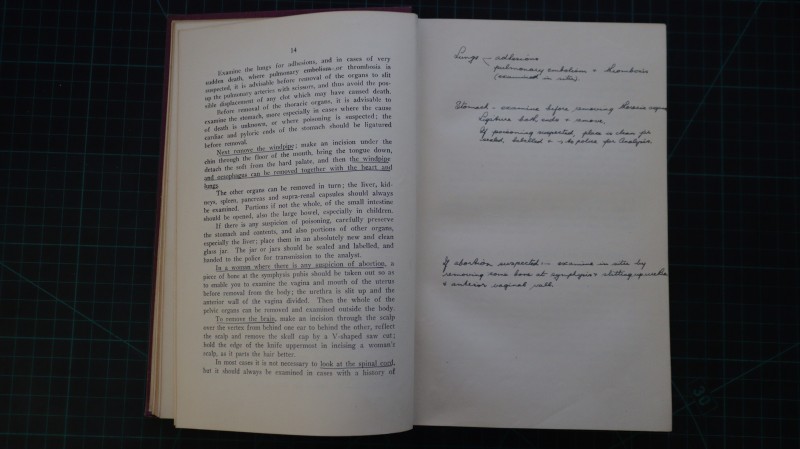 14
Examine the lungs for adhesions, and in cases of very
sudden death, where pulmonary embolism or thrombosis is
suspected, it is advisable before removal of the organs to slit
up the pulmonary arteries with scissors, and thus avoid the pos-
sible displacement of any clot which may have caused death.
Before removal of the thoracic organs, it is advisable to
examine the stomach, more especially in cases where the cause
of death is unknown, or where poisoning is suspected; the
cardiac and pyloric ends of the stomach should be ligatured
before removal.
Next remove the windpipe; make an incision under the
chin through the floor of the mouth, bring the tongue down,
detach the soft from the hard palate, and then the windpipe
and oesophagus can be removed together with the heart and
lungs.
The other organs can be removed in turn; the liver, kid-
neys, spleen, pancreas and supra-renal capsules should always
be examined. Portions if not the whole, of the small intestine
should be opened, also the large bowel, especially in children.
If there is any suspicion of poisoning, carefully preserve
the stomach and contents, and also portions of other organs,
especially the liver; place them in an absolutely new and clean
glass jar. The jar or jars should be sealed and labelled, and
handed to the police for transmission to the analyst.
In a woman where there is any suspicion of abortion, a
piece of bone at the symphysis pubis should be taken out so as
to enable you to examine the vagina and mouth of the uterus
before removal from the body; the urethra is slit up and the
anterior wall of the vagina divided. Then the whole of the
pelvic organs can be removed and examined outside the body.
To remove the brain, make an incision through the scalp
over the vertex from behind one ear to behind the other, reflect
the scalp and remove the skull cap by a V-shaped saw cut;
hold the edge of the knife uppermost in incising a woman's
scalp, as it parts the hair better.
In most cases it is not necessary to look at the spinal cord,
but it should always be examined in cases with a history of
Lungs - adhesions
pulmonary embolism + thrombosis
(examined in situ).
Stomach - examine before removing thoracic organs
Ligature both ends + remove.
If poisoning suspected, place in clean jar
sealed, labelled + → to police for Analysis.
If abortion suspected - examine in situ by
removing some bone at symphysis + slitting up urethra
+ anterior vaginal wall.